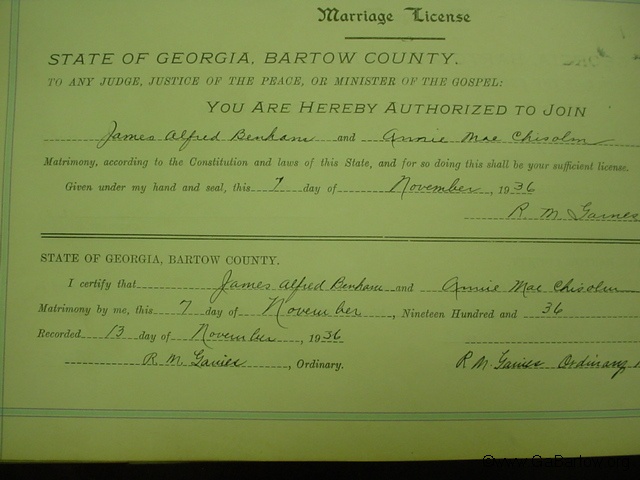 Marriage License
STATE OF GEORGIA, BARTOW COUNTY.
TO ANY JUDGE, JUSTICE OF THE PEACE, OR MINISTER OF THE GOSPEL:
YOU ARE HEREBY AUTHORIZED TO JOIN
James Alfred Benham and Annie Mae Chisolm
Matrimony, according to the Constitution and laws of this State, and for so doing this shall be your sufficient license.
Given under my hand and seal, this 7 day of November, 1936
R. M. Gaines
STATE OF GEORGIA, BARTOW COUNTY.
I certify that James Alfred Benham and Annie Mae Chisolm
Matrimony by me, this 7 day of November, Nineteen Hundred and 36
Recorded 13 day of November, 1936
R M Gaines, Ordinary. R M Gaines Ordinary